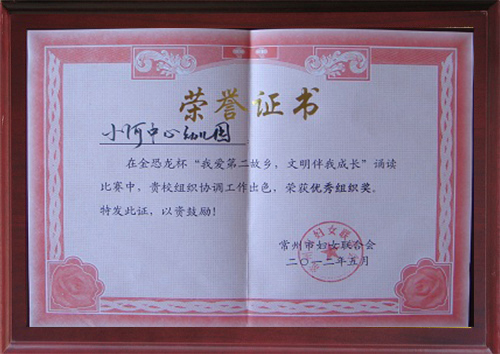 荣誉证书
小河中心幼儿园
在金恐龙杯“我爱第二故乡，文明伴我成长”诵读
比赛中，贵校组织协调工作出色，荣获优秀组织奖。
特发此证，以资鼓励！
常州市妇女联合会
二〇一二年五月